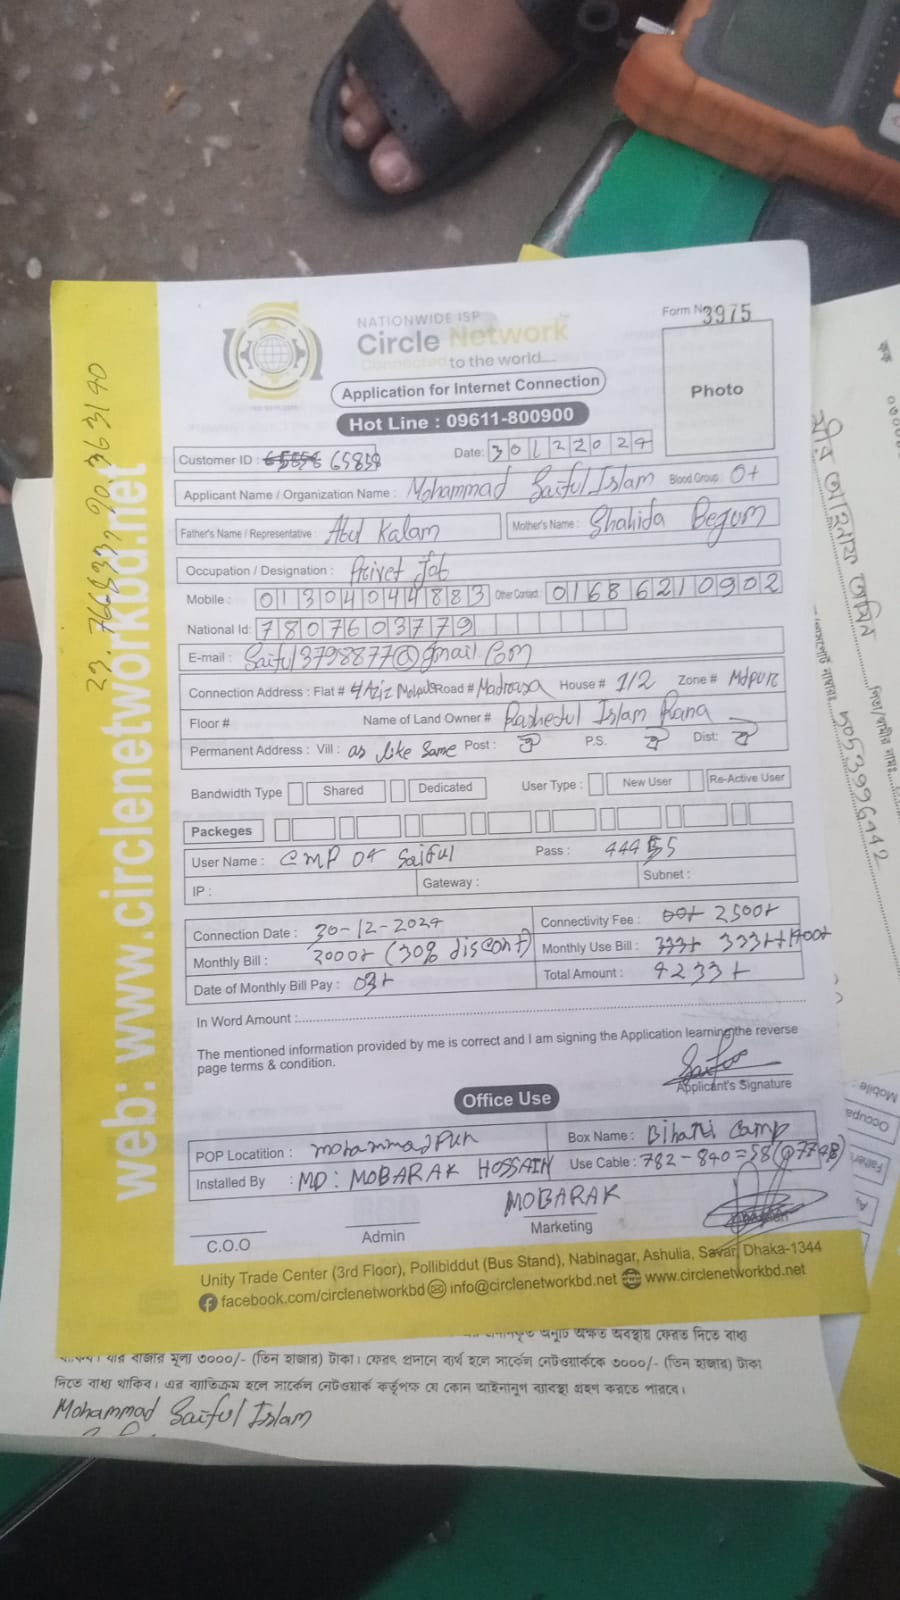 NATIONWIDE ISP
Circle Network
Connected to the world....
Form No 3975
Photo
Application for Internet Connection
Hot Line : 09611-800900
Customer ID : 65858
Date: 30122024
Applicant Name / Organization Name : Mohammad Saiful Islam Blood Group : O+
Father's Name / Representative : Abul Kalam Mother's Name : Shahida Begum
Occupation / Designation : Privet Job
Mobile : 01304044883 Other Contact : 01686210902
National Id: 7807603779
E-mail : Saiful3798877@gmail.com
Connection Address : Flat # 4 Aziz Road # Madrasa House # 1/2 Zone # Mdpur
Floor # Name of Land Owner # Rashedul Islam Rana
Permanent Address : Vill : as like same Post : P.S. Dist:
Bandwidth Type Shared Dedicated User Type : New User Re-Active User
Packeges
User Name : CMP 04 Saiful Pass : 444
IP : Gateway : Subnet :
Connection Date : 30-12-2024 Connectivity Fee : 2500+
Monthly Bill : (30% discont) Monthly Use Bill :
Date of Monthly Bill Pay : 03+ Total Amount : 4233+
In Word Amount :
The mentioned information provided by me is correct and I am signing the Application learning the reverse
page terms & condition.
Applicant's Signature
Office Use
POP Locatition : mohammadpur Box Name : Bihari Camp
Installed By : MD: MOBARAK HOSSAIN Use Cable : 782-840=58
MOBARAK
C.O.O Admin Marketing
Unity Trade Center (3rd Floor), Pollibiddut (Bus Stand), Nabinagar, Ashulia, Savar, Dhaka-1344
facebook.com/circlenetworkbd info@circlenetworkbd.net www.circlenetworkbd.net
web: www.circlenetworkbd.net
অবস্থায় ফেরত দিতে বাধ্য
যার বাজার মূল্য ৩০০০/- (তিন হাজার) টাকা। ফেরৎ প্রদানে ব্যর্থ হলে সার্কেল নেটওয়ার্ককে ৩০০০/- (তিন হাজার) টাকা
দিতে বাধ্য থাকিব। এর ব্যতিক্রম হলে সার্কেল নেটওয়ার্ক কর্তৃপক্ষ যে কোন আইনানুগ ব্যবস্থা গ্রহণ করতে পারবে।
Mohammad Saiful Islam
5053996442
Mobile :
Occupa
Father'